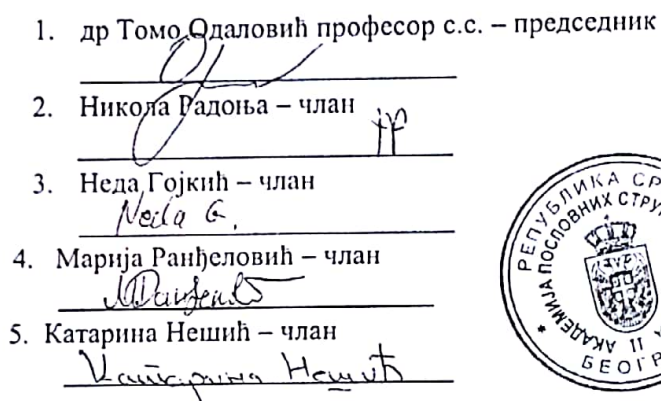 1. др Томо Одаловић професор с.с. – председник
2. Никола Радоња – члан
3. Неда Гојкић – члан
Neda G.
4. Марија Ранђеловић – члан
5. Катарина Нешић – члан
Катарина Нешић
РЕПУБЛИКА СР
АКАДЕМИЈА ПОСЛОВНИХ СТРУ
БЕОГР